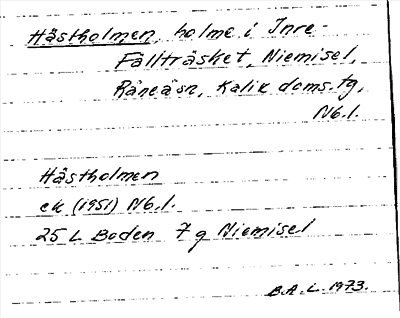 Hästholmen, holme i Inre-
Fällträsket, Niemisel,
Råneåsn, Kalix doms.tg,
Nb.l.
Hästholmen
ek (1951) Nb.l.
25 L Boden 7 g Niemisel
B.A.L. 1973.